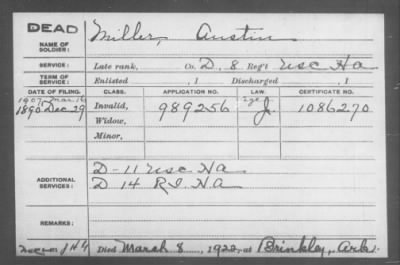 DEAD
NAME OF SOLDIER: Miller, Austin
SERVICE: Late rank, Co. D, 8 Reg't USC HA
TERM OF SERVICE: Enlisted , 1 Discharged , 1
DATE OF FILING. CLASS. APPLICATION NO. LAW. CERTIFICATE NO.
1907 Mar 16
1890 Dec 29 Invalid, 989256 J. 1086270
Widow,
Minor,
ADDITIONAL SERVICES: D-11 USC HA
D 14 R.I. H.A
REMARKS:
Died March 8, 1922, at Brinkley, Ark.